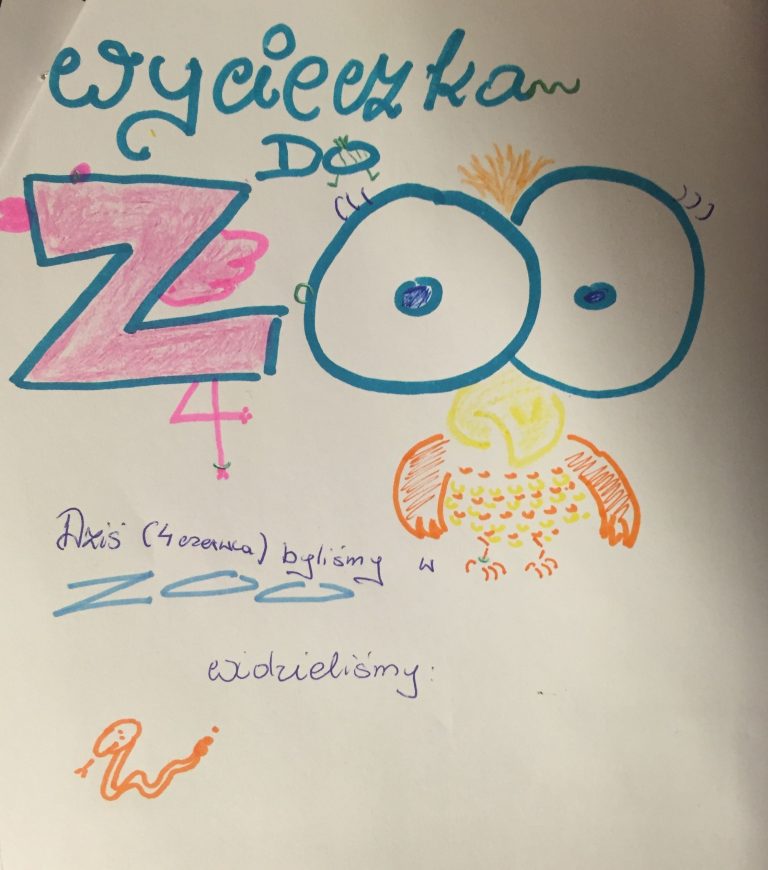 Wycieczka
DO
ZOO
Dziś (4 czerwca) byliśmy w
ZOO
widzieliśmy: